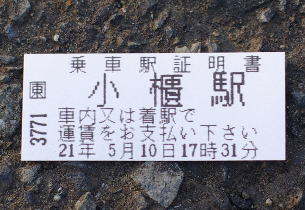 乗車駅証明書
東
小櫃駅
3771
車内又は着駅で
運賃をお支払い下さい
21年 5月10日17時31分